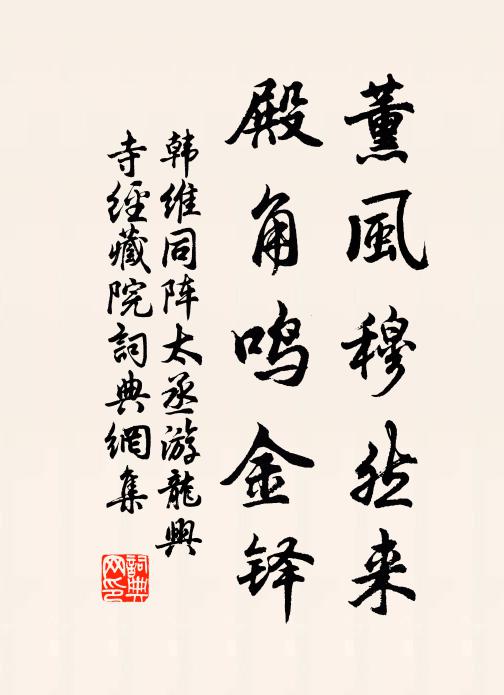 薰風穆然来
殿角鸣金铎
韩維同阵太丞游龍興
寺經藏院詞典網集
詞典网印